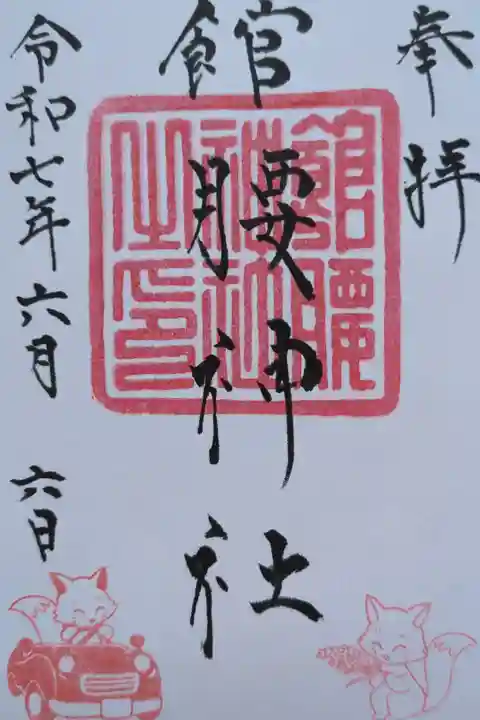 奉拝
館腰神社
館腰神社之印
令和七年六月 六日